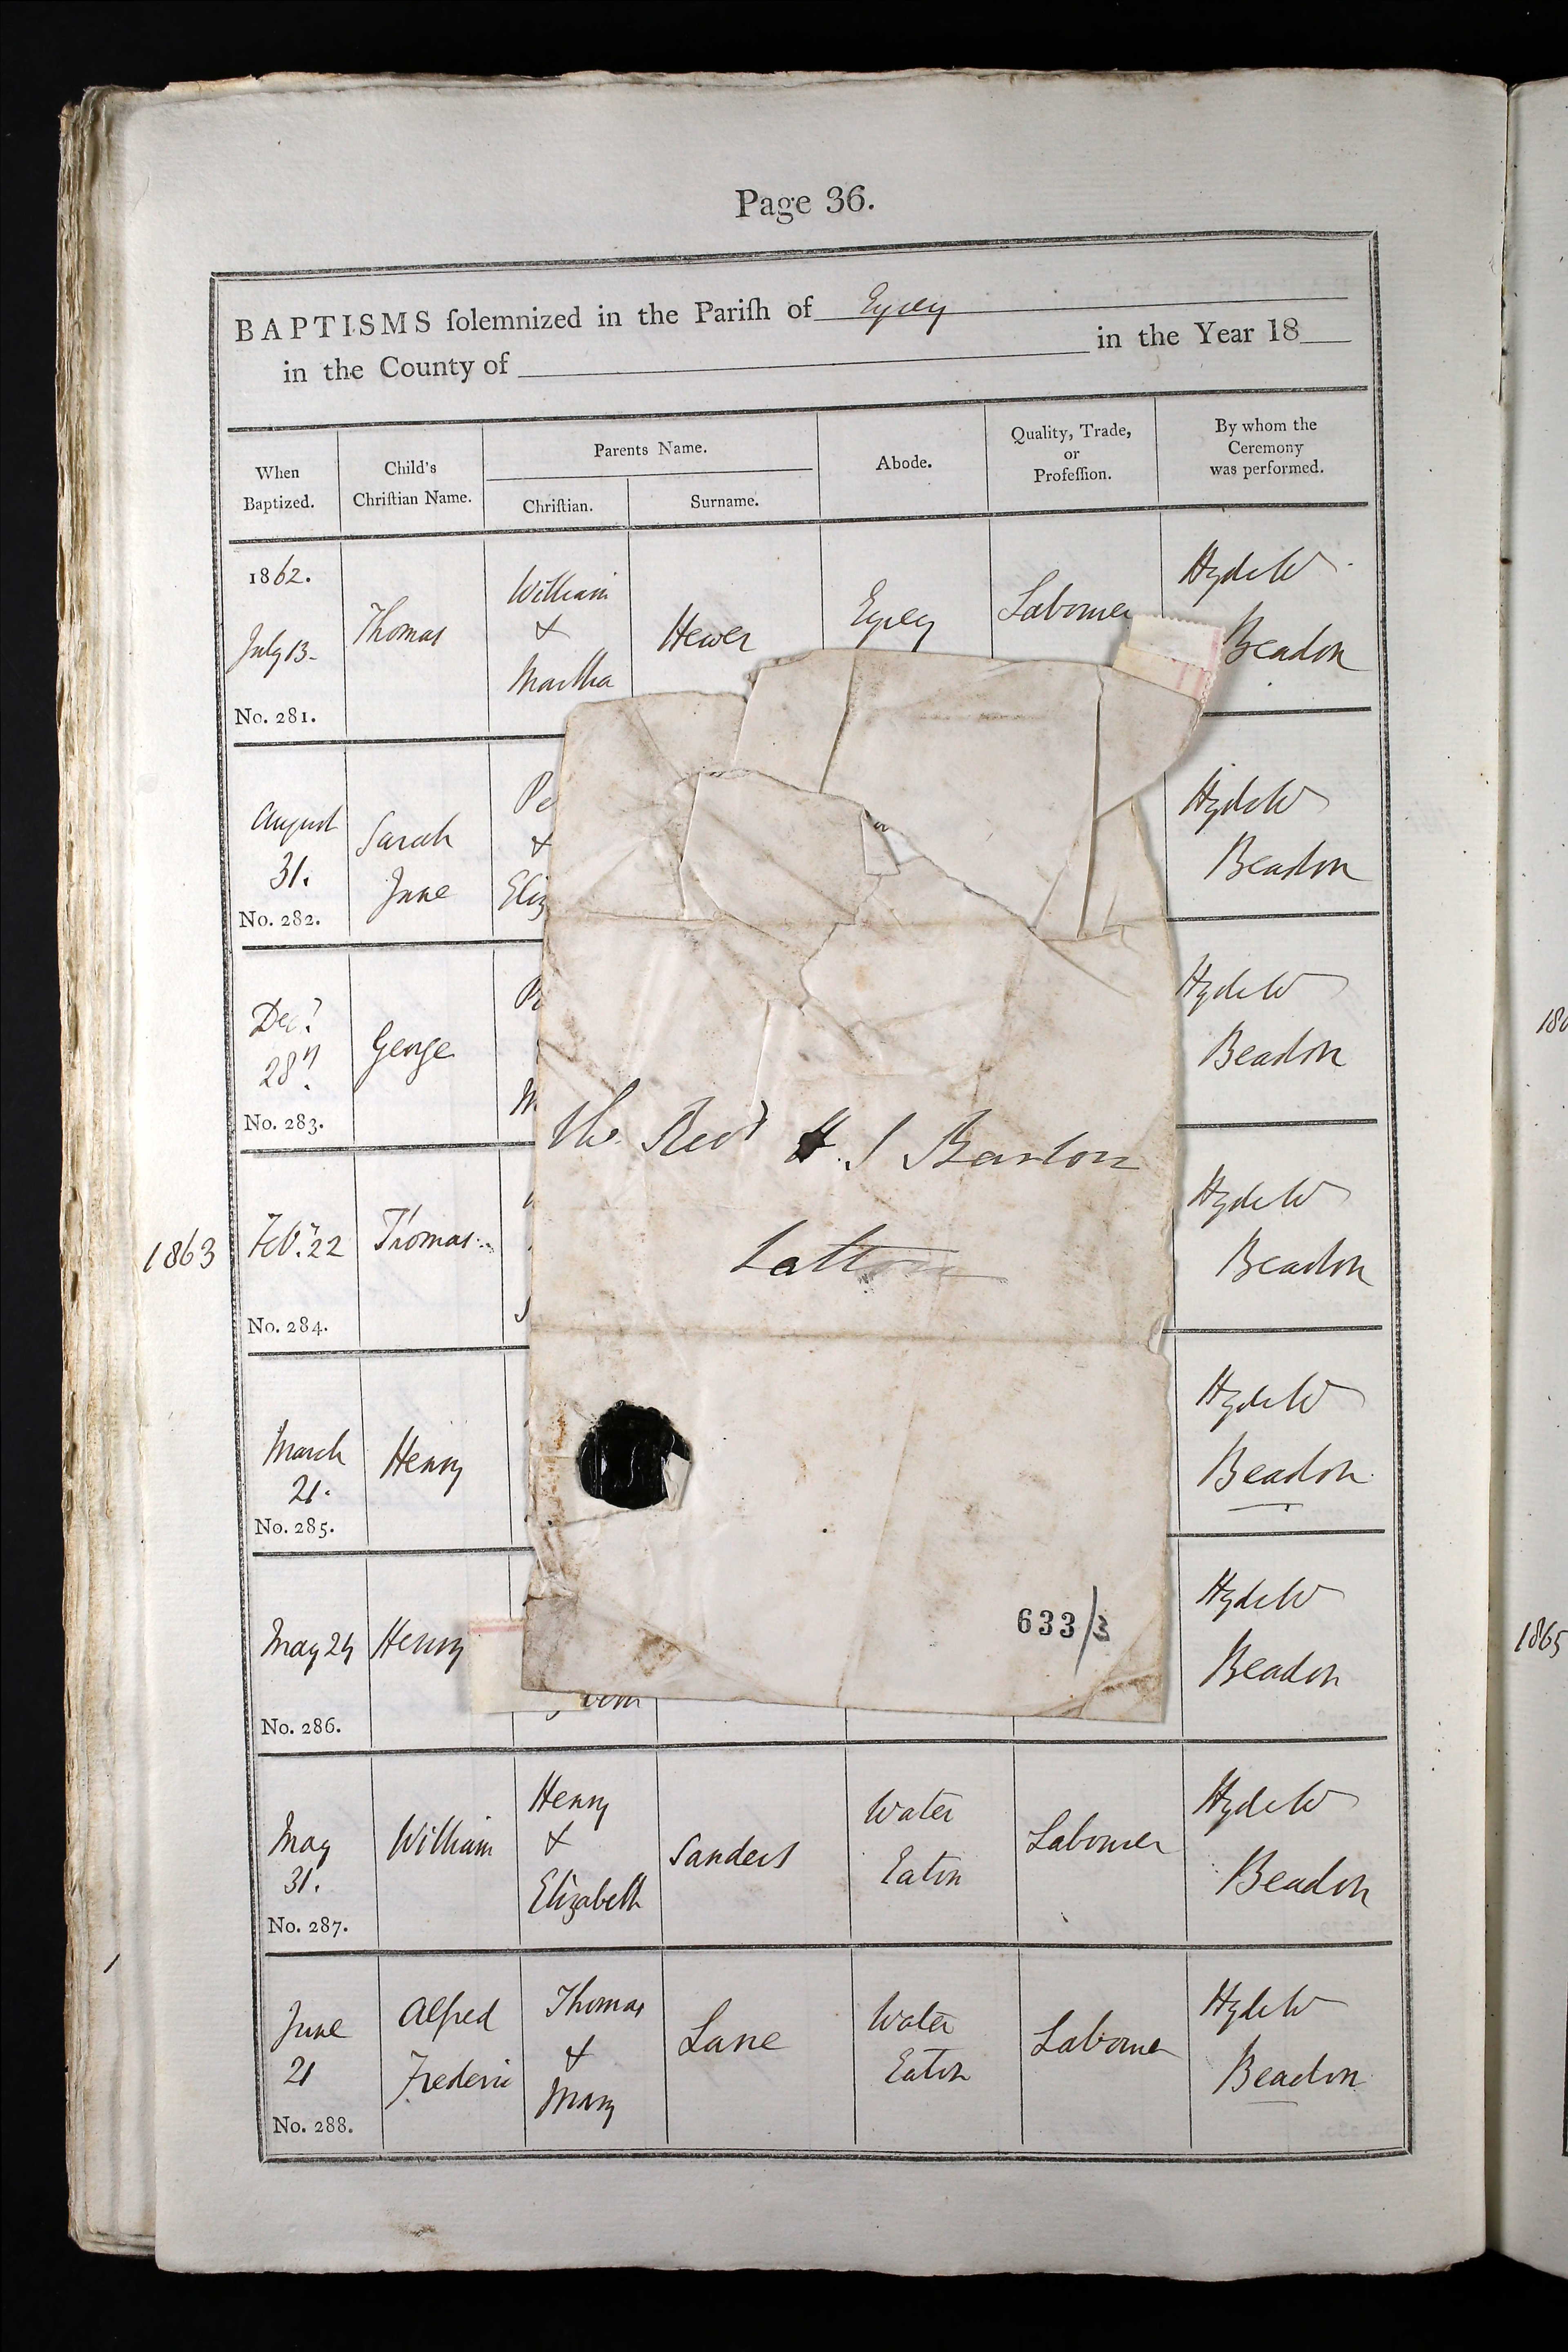 Page 36.
BAPTISMS ſolemnized in the Pariſh of Eysey
in the County of in the Year 18
When Baptized.
Child's Chriſtian Name.
Parents Name.
Chriſtian.
Surname.
Abode.
Quality, Trade, or Profeſſion.
By whom the Ceremony was performed.
1862.
July 13.
No. 281.
Thomas
William
&
Martha
Hewer
Eysey
Labourer
Hyde W
Beadon
August
31.
No. 282.
Sarah
Jane
Pe
&
Eliz
Hyde W
Beadon
Decr
28th
No. 283.
George
M
Hyde W
Beadon
1863
Feby 22
No. 284.
Thomas
Hyde W
Beadon
March
21.
No. 285.
Henry
Hyde W
Beadon
May 24
No. 286.
Henry
Hyde W
Beadon
May
31.
No. 287.
William
Henry
&
Elizabeth
Sanders
Water
Eaton
Labourer
Hyde W
Beadon
June
21
No. 288.
Alfred
Frederic
Thomas
&
Mary
Lane
Water
Eaton
Labourer
Hyde W
Beadon
The Revd H. S Barton
Latton
633/3
186
1865